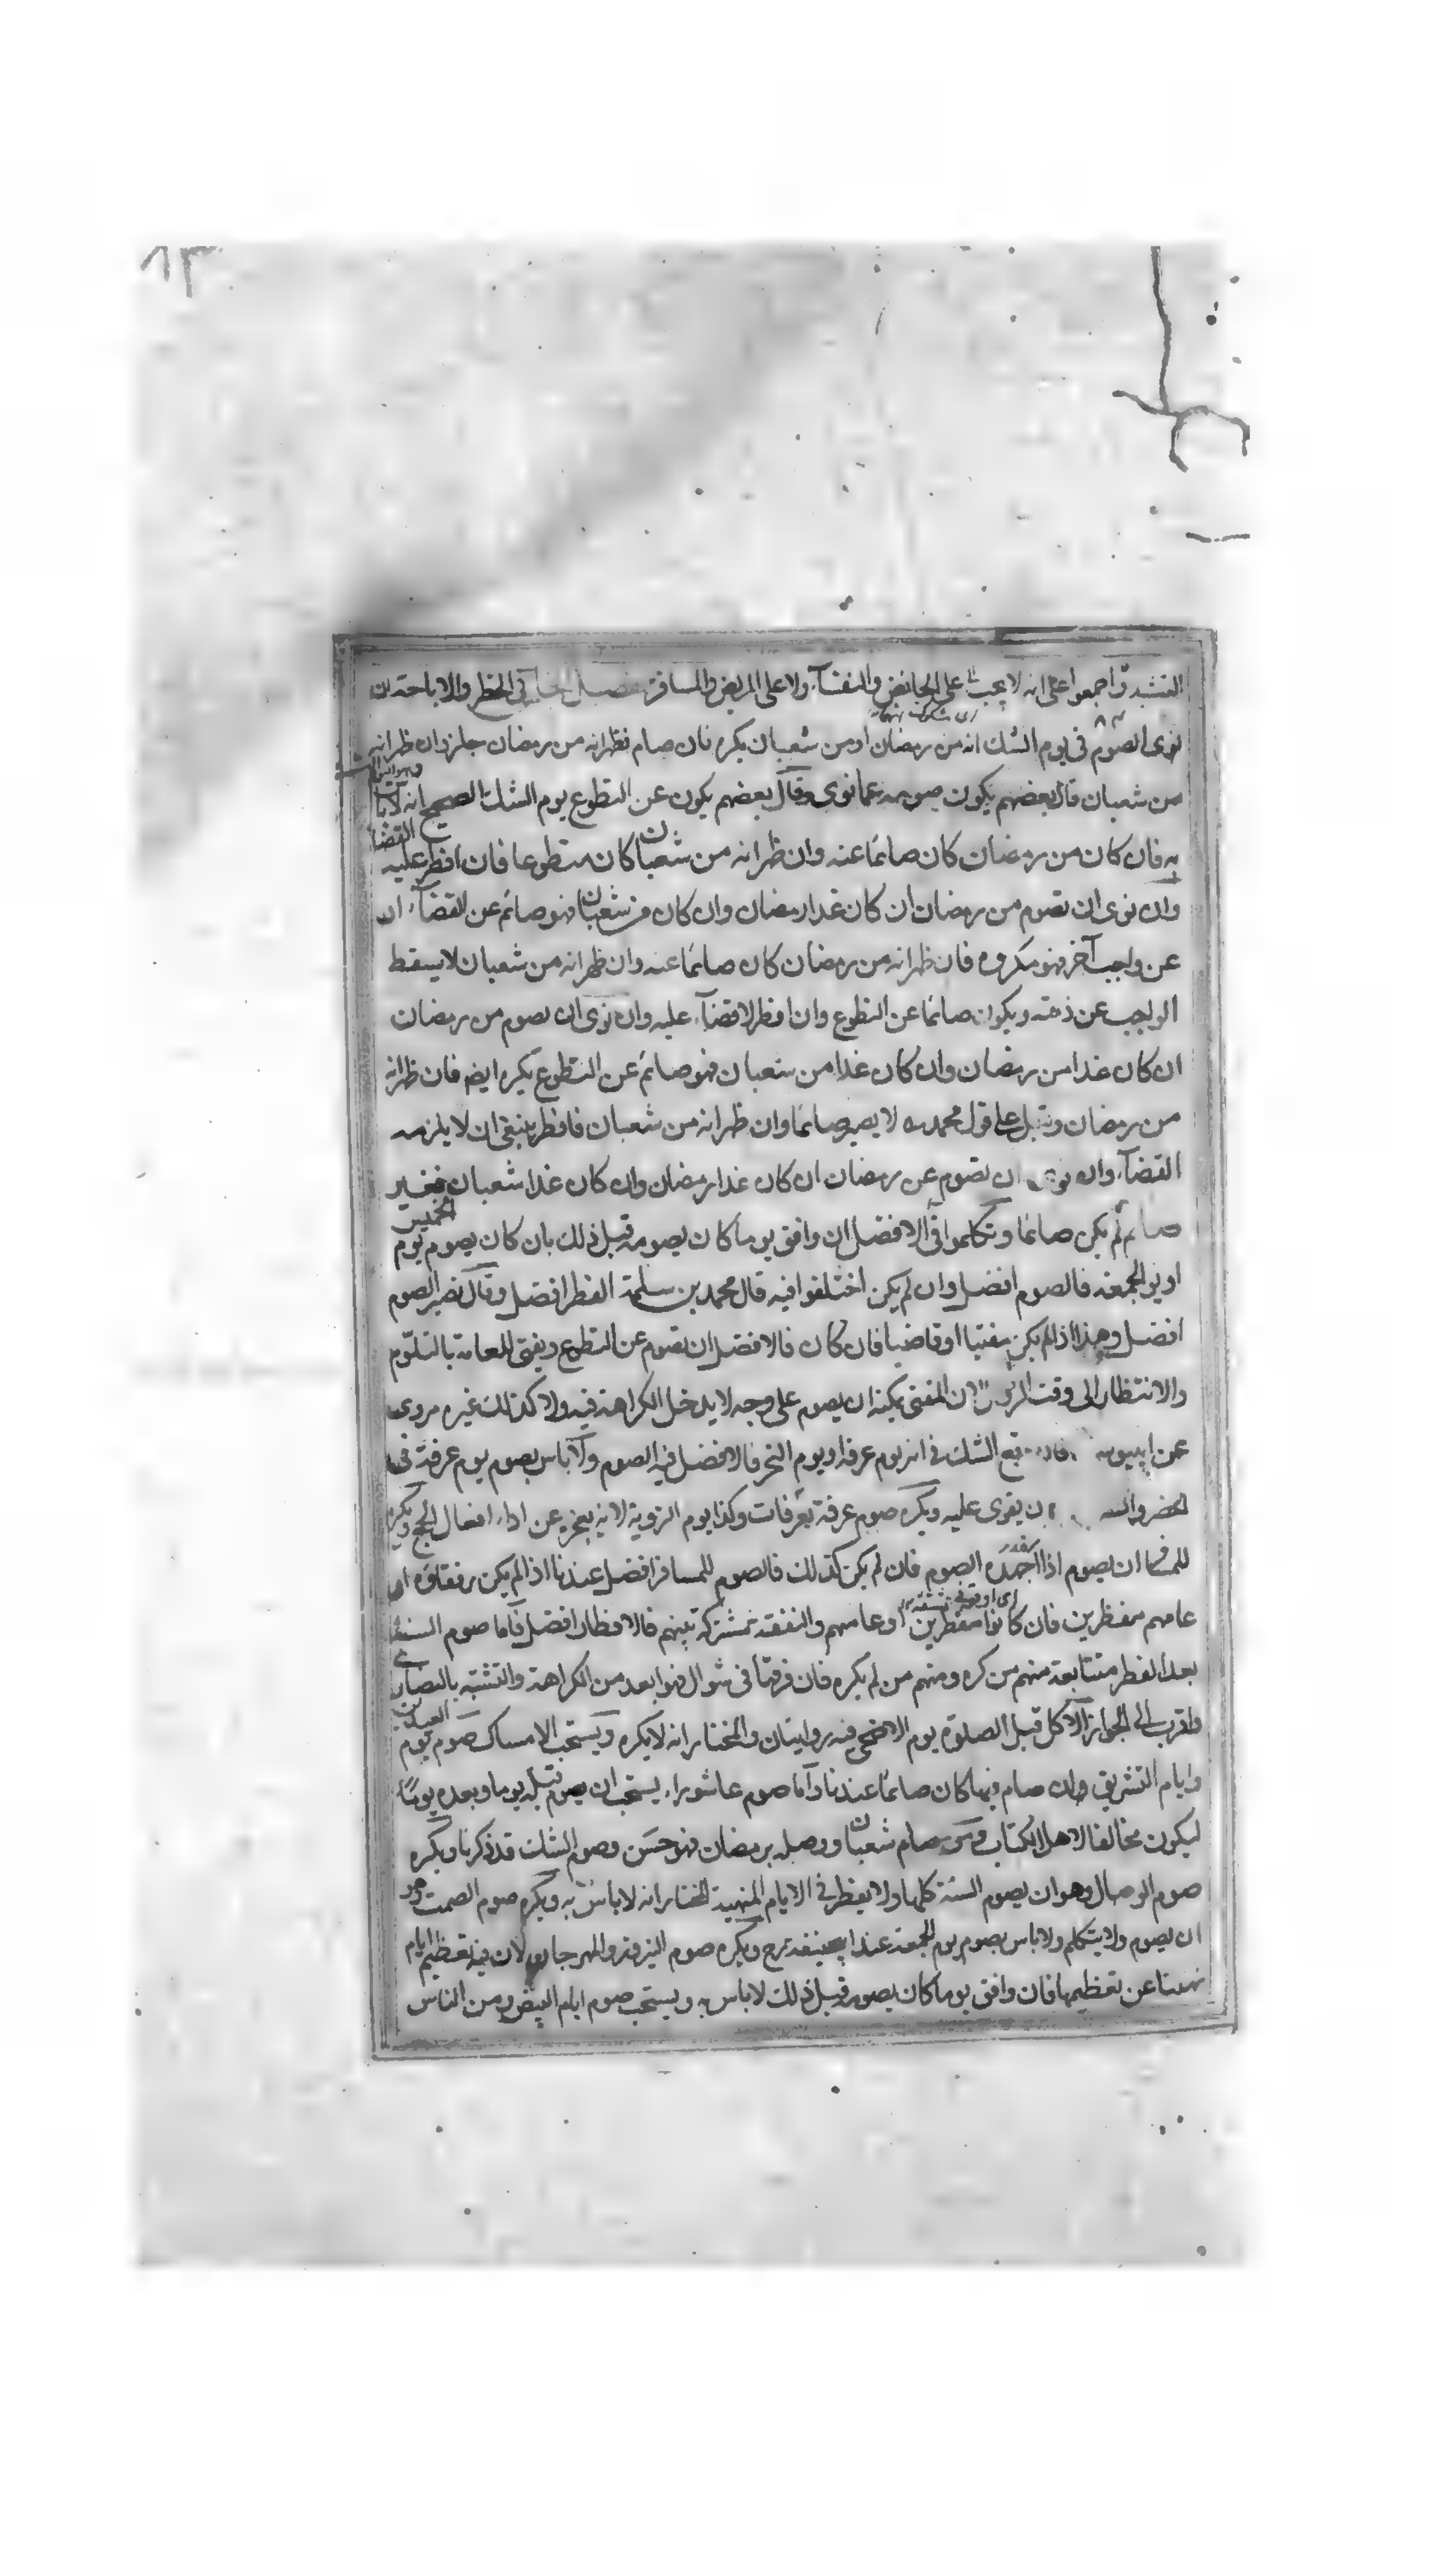 ٨٣
التشبه واجمعوا على انه لا يجب على الحائض والنفساء ولا على المريض والمسافر فصل في الحظر والاباحة ان
نوى الصوم في يوم الشك انه من رمضان او من شعبان يكره فان صام فظهر انه من رمضان جاز وان ظهر انه
من شعبان قال بعضهم يكون صومه عما نوى وقال بعضهم يكون عن التطوع يوم الشك الصحيح انه لا باس
به فان كان من رمضان كان صائما عنه وان ظهر انه من شعبان كان متطوعا فان افطر عليه القضا
وان نوى ان تصوم من رمضان ان كان غدا رمضان وان كان من شعبان فهو صائم عن القضاء او
عن واجب آخر فهو مكروه فان ظهر انه من رمضان كان صائما عنه وان ظهر انه من شعبان لا يسقط
الواجب عن ذمته ويكون صائما عن التطوع وان افطر لا قضاء عليه وان نوى ان يصوم من رمضان
ان كان غدا من رمضان وان كان غدا من شعبان فهو صائم عن التطوع يكره ايضا فان ظهر انه
من رمضان وقيل على قول محمد رح لا يصير صائما وان ظهر انه من شعبان فافطر ينبغي ان لا يلزمه
القضاء وان نوى ان تصوم عن رمضان ان كان غدا رمضان وان كان غدا شعبان فغير
صائم لم يكن صائما وتكلموا في الافضل ان وافق يوما كان يصومه قبل ذلك بان كان يصوم يوم الخميس
او يوم الجمعة فالصوم افضل وان لم يكن اختلفوا فيه قال محمد بن سلمة الفطر افضل وقال نصير الصوم
افضل وهذا اذا لم يكن مفتيا او قاضيا فان كان فالافضل ان تصوم عن التطوع ويفتى للعامة بالتلوم
والانتظار الى وقت الزوال لان المفتي يمكنه ان يصوم على وجه لا يدخل الكراهة فيه ولا كذلك غيره مروى
عن ابي يوسف وقع الشك في انه يوم عرفة او يوم النحر فالافضل فيه الصوم ولا باس بصوم يوم عرفة في
الحضر والسفر ان يقوى عليه ويكره صوم عرفة بعرفات وكذا يوم التروية لانه يعجزه عن اداء افعال الحج ويكره
للمسافر ان يصوم اذا اجهده الصوم فان لم يكن كذلك فالصوم للمسافر افضل عندنا اذا لم يكن رفقاؤه او
عامهم مفطرين فان كانوا مفطرين او عامهم والنفقة مشتركة بينهم فالافطار افضل فاما صوم الستة
بعد الفطر متتابعة منهم من كره ومنهم من لم يكره فان فرقها في شوال فهو ابعد من الكراهة والتشبه بالنصارى
واقرب الى الجواز الاكل قبل الصلوة يوم الاضحى فيه روايتان والمختار انه لا يكره ويستحب الامساك صوم يوم العيدين
وايام التشريق وان صام فيها كان صائما عندنا واما صوم عاشوراء يستحب ان يصوم قبله يوما وبعده يوما
ليكون مخالفا لاهل الكتاب ومن صام شعبان ووصله برمضان فهو حسن وصوم الشك قد ذكرنا ويكره
صوم الوصال وهو ان يصوم السنة كلها ولا يفطر في الايام المنهية المختار انه لا باس به ويكره صوم الصمت وهو
ان يصوم ولا يتكلم ولا باس بصوم يوم الجمعة عند ابي حنيفة رح ويكره صوم النيروز والمهرجان لان فيه تعظيم ايام
نهينا عن تعظيمها فان وافق يوما كان يصومه قبل ذلك لا باس به ويستحب صوم ايام البيض ومن الناس